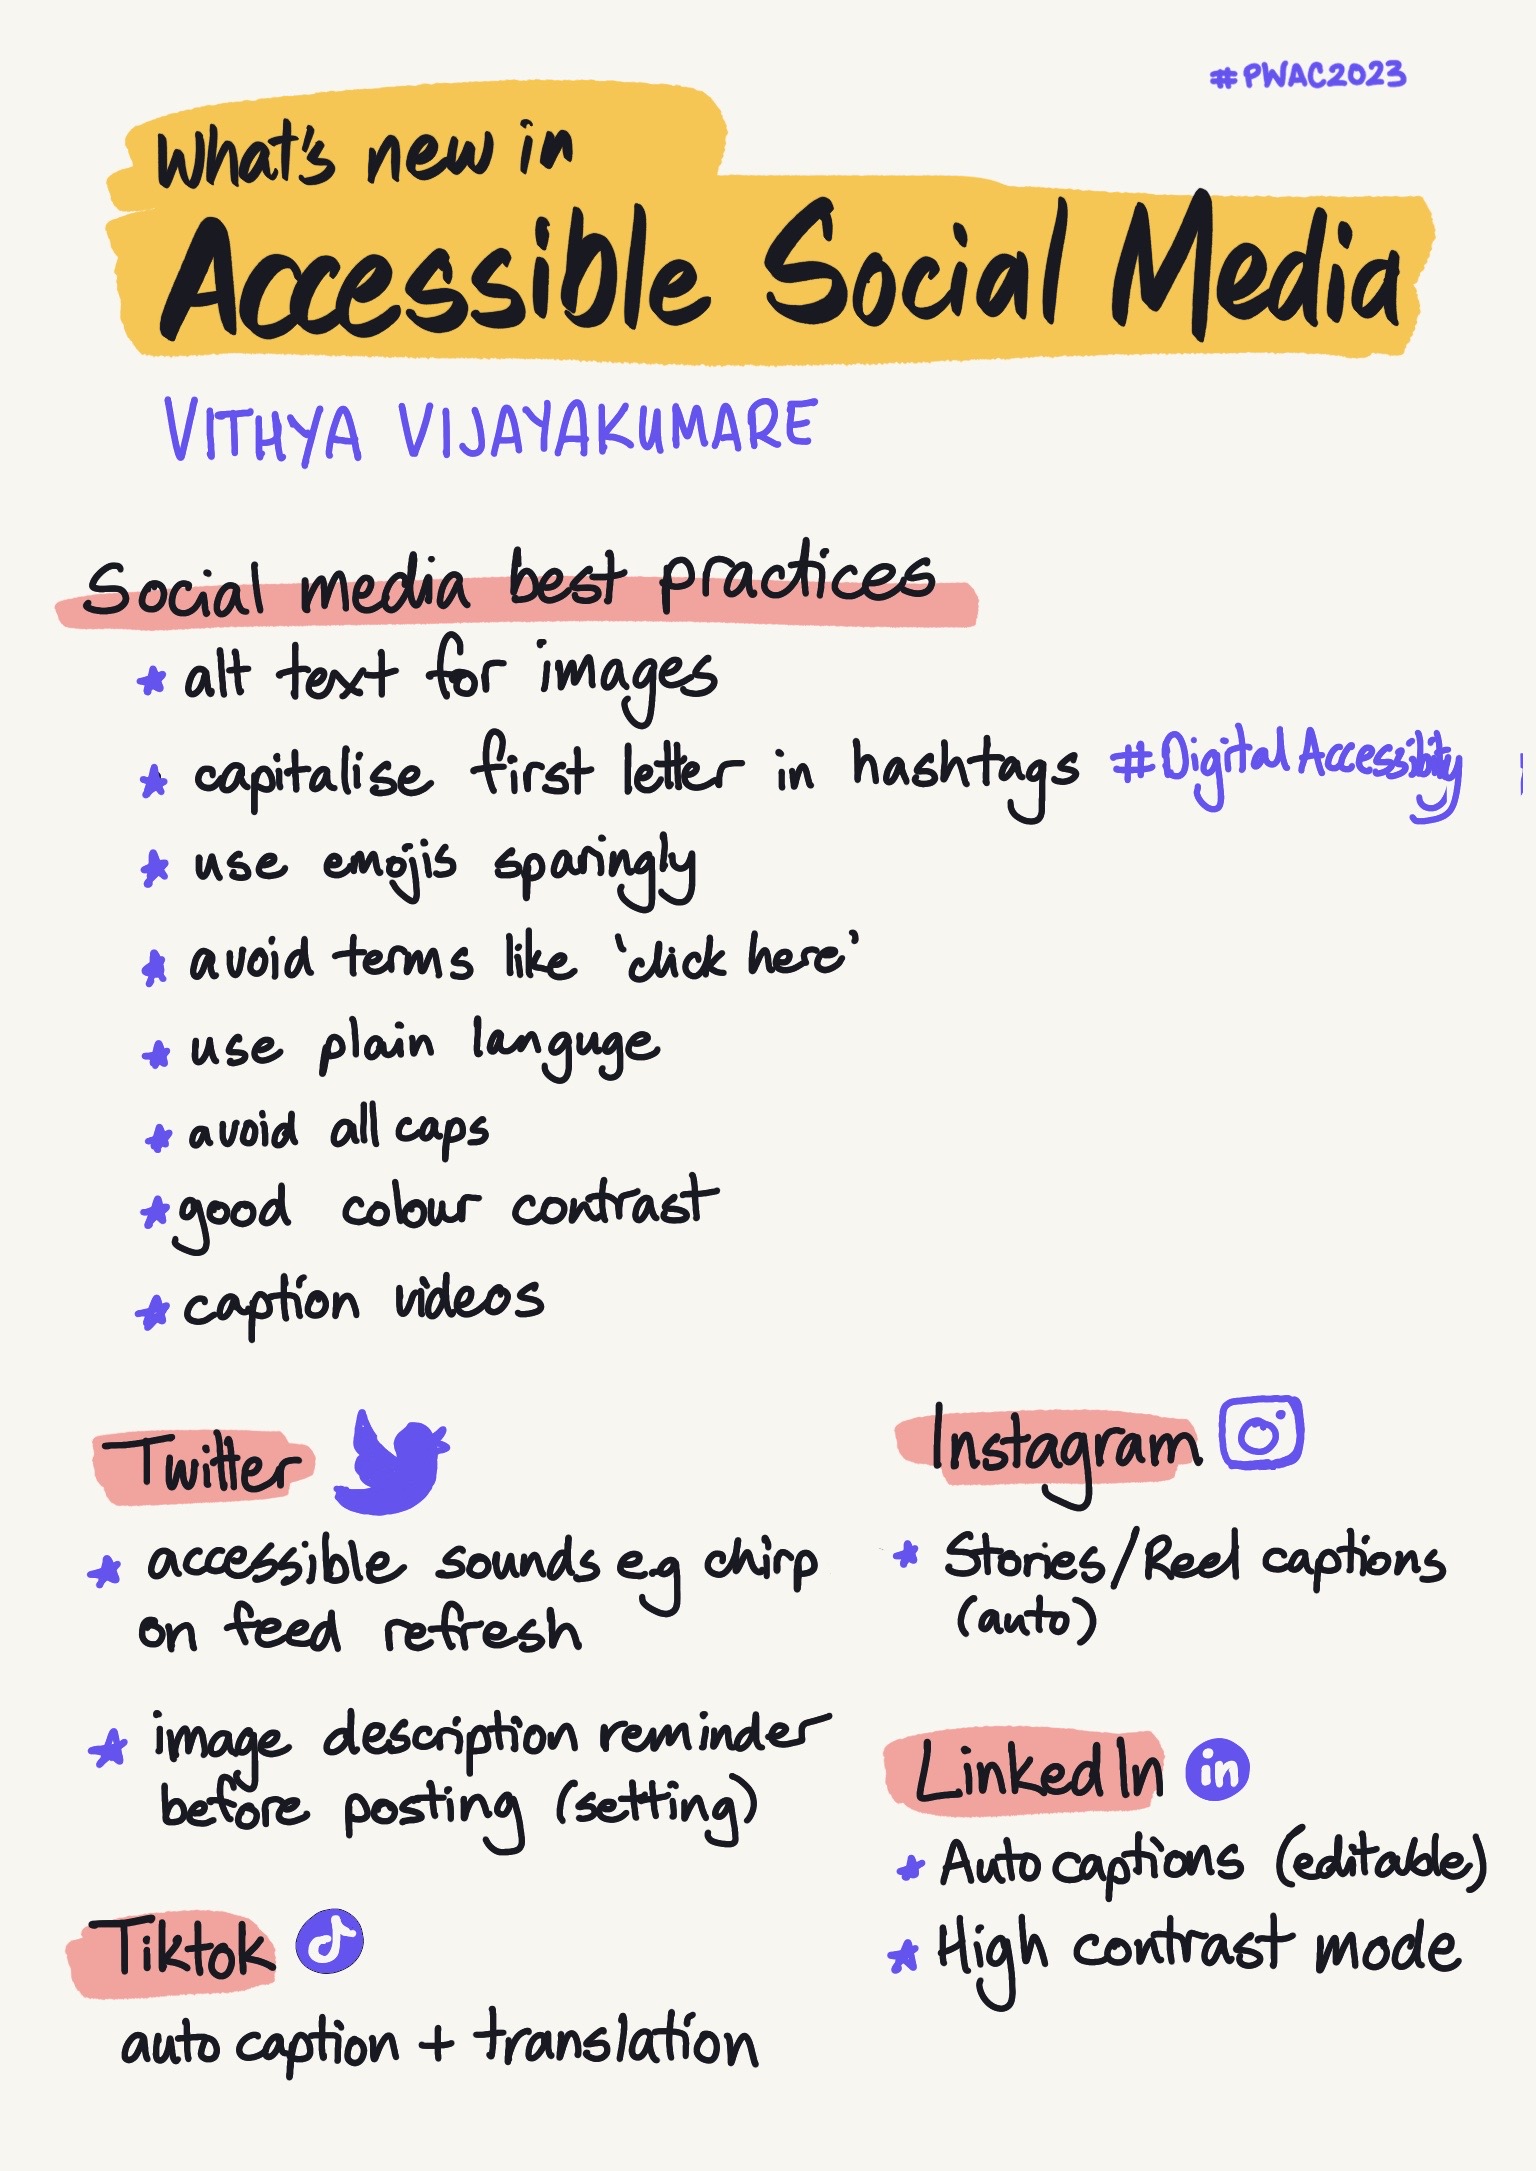 #PWAC2023
What's new in
Accessible Social Media
VITHYA VIJAYAKUMARE
Social media best practices
alt text for images
capitalise first letter in hashtags #DigitalAccessiblity
use emojis sparingly
avoid terms like 'click here'
use plain languge
avoid all caps
good colour contrast
caption videos
Twitter
accessible sounds e.g chirp
on feed refresh
image description reminder
before posting (setting)
Tiktok
auto caption + translation
Instagram
Stories/Reel captions
(auto)
LinkedIn in
Auto captions (editable)
High contrast mode